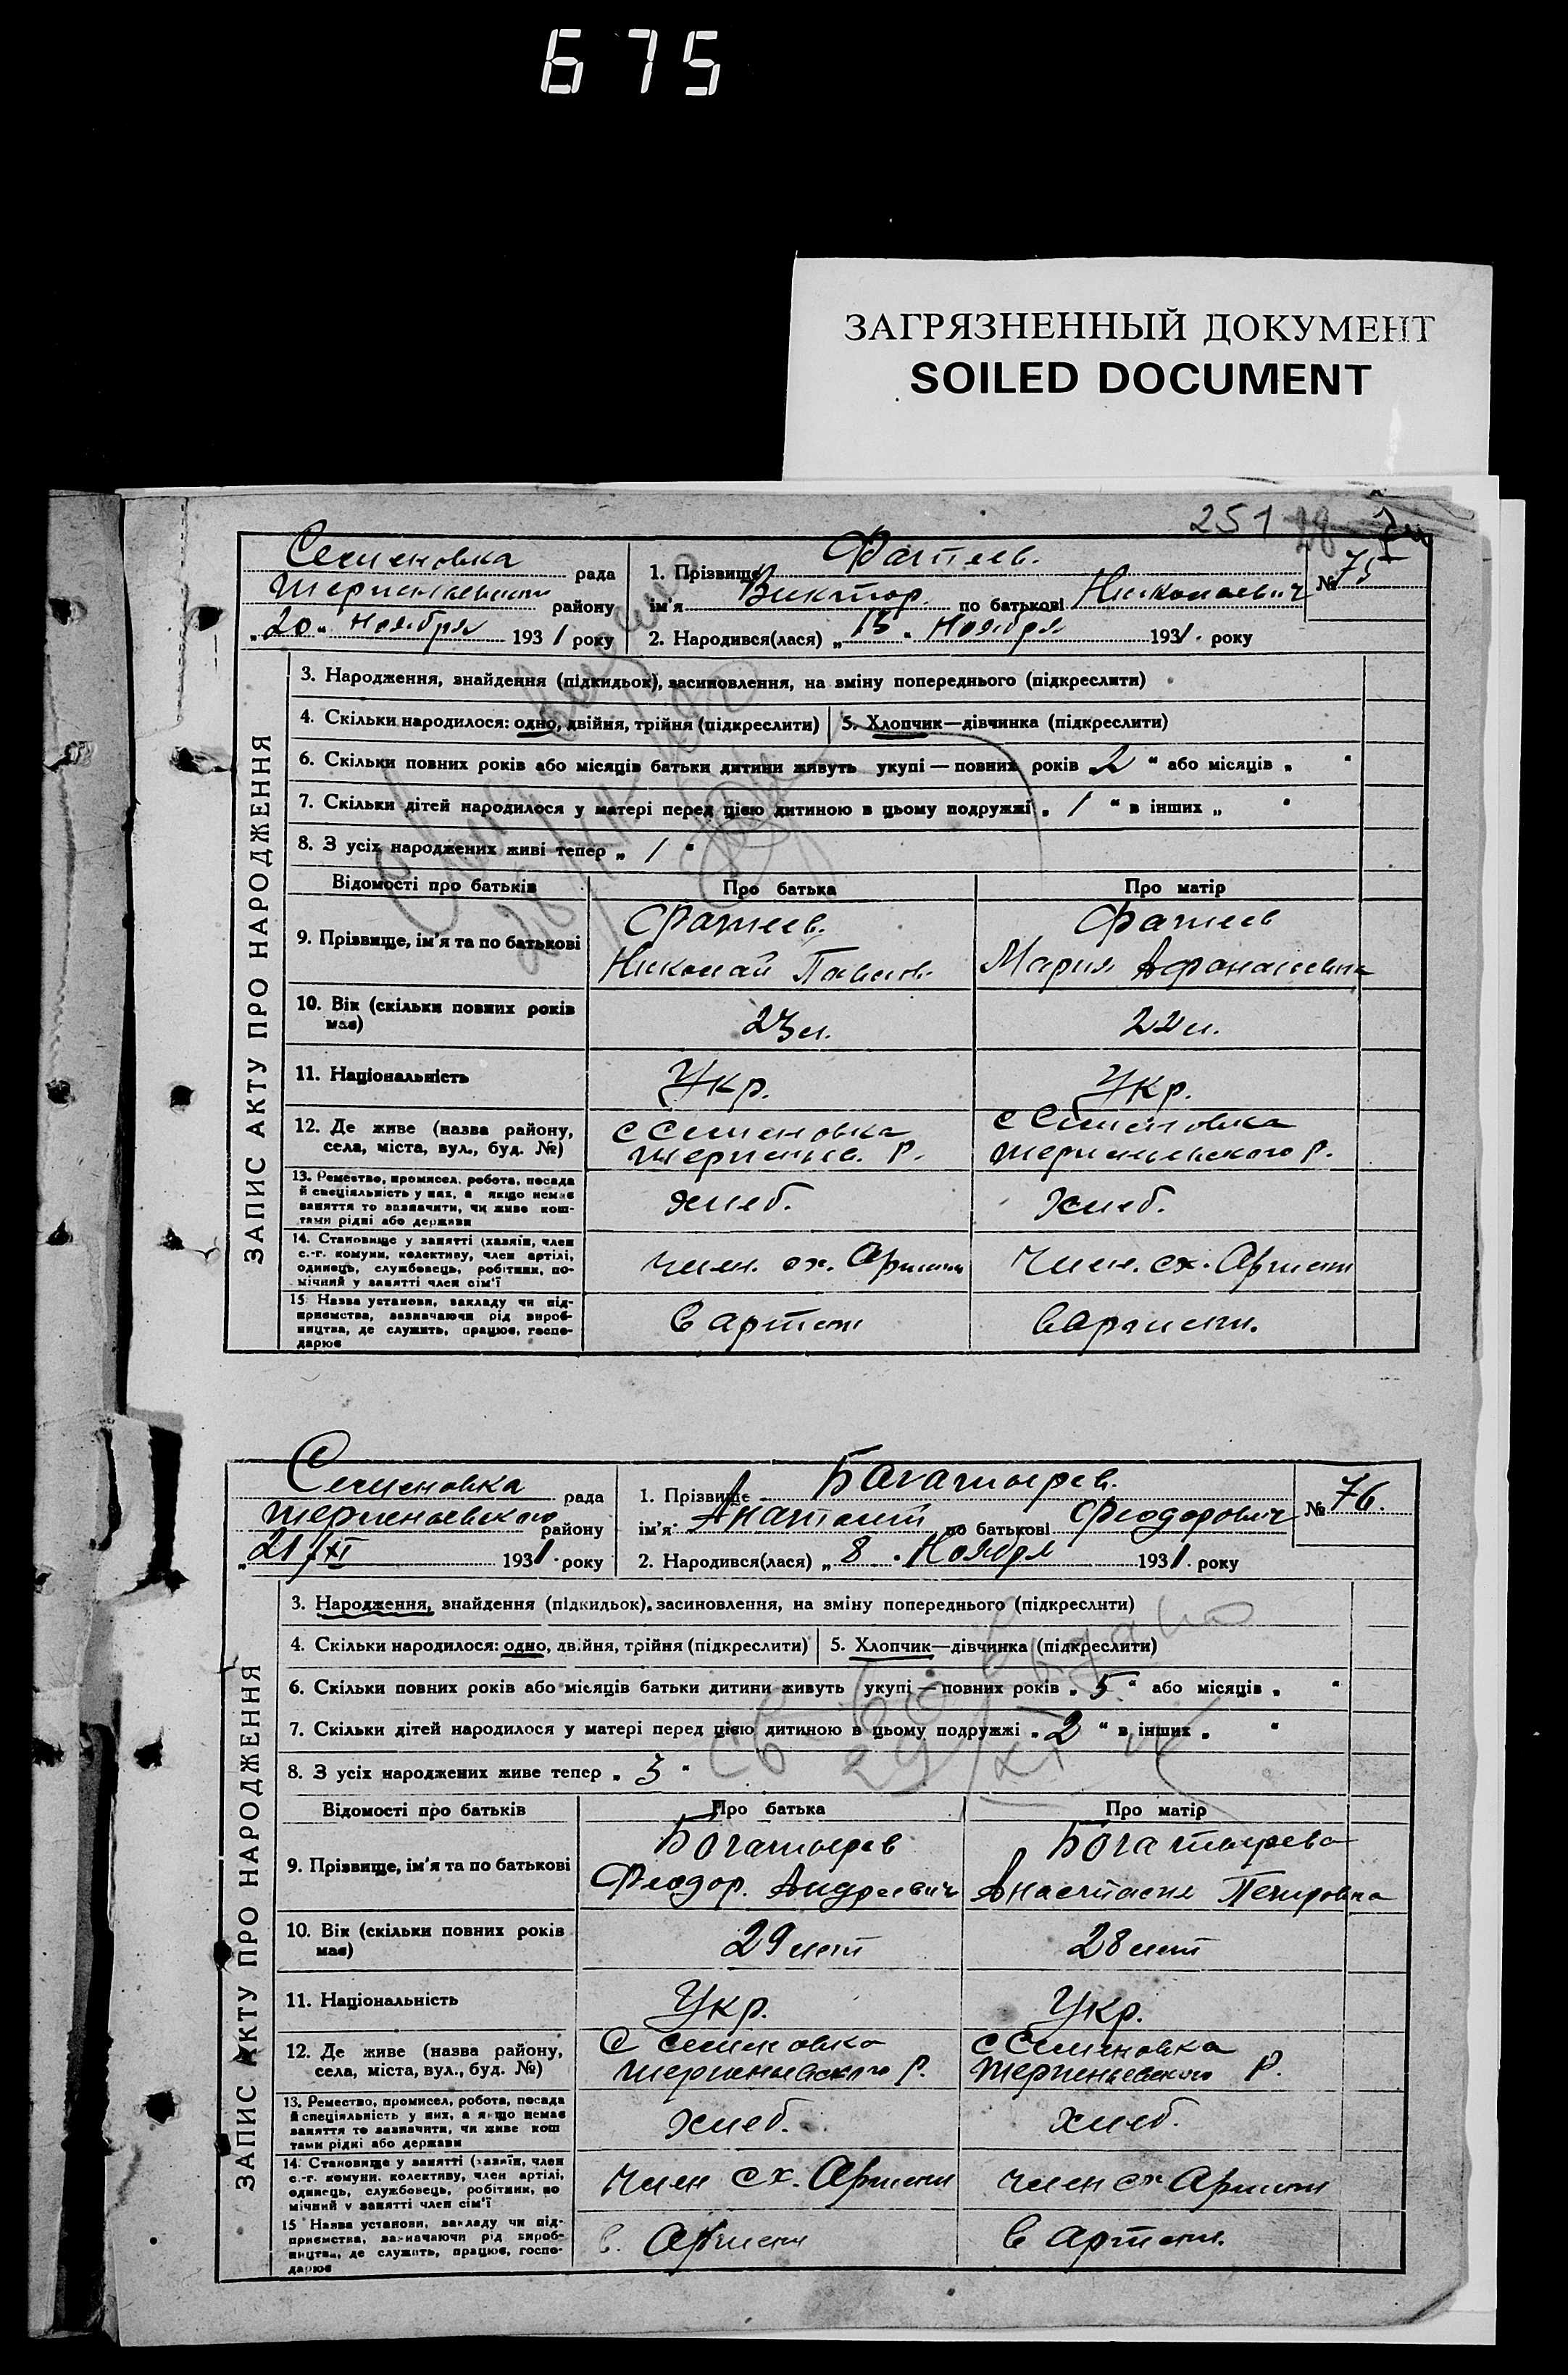 675
ЗАГРЯЗНЕННЫЙ ДОКУМЕНТ
SOILED DOCUMENT
251
ЗАПИС АКТУ ПРО НАРОДЖЕННЯ
Семеновка рада
района
„20“ Ноября 1931 року
1. Прізвище Фатеев.
ім'я Виктор. по батькові Николаевич
№ 75
2. Народився(лася) „15“ Ноября 1931. року
3. Народження, знайдення (підкидьок), засиновлення, на зміну попереднього (підкреслити)
4. Скільки народилося: одно, двійня, трійня (підкреслити)
5. Хлопчик—дівчинка (підкреслити)
6. Скільки повних років або місяців батьки дитини живуть укупі — повних років „2“ або місяців „ “
7. Скільки дітей народилося у матері перед цією дитиною в цьому подружжі „1“ в інших „ “
8. З усіх народжених живі тепер „1“
Відомості про батьків Про батька Про матір
9. Прізвище, ім'я та по батькові
Фатеев. Фатеев
Николай Павлов. Мария Афанасиевна
10. Вік (скільки повних років має) 23 л. 22 л.
11. Національність Укр. Укр.
12. Де живе (назва району, села, міста, вул., буд. №)
с Семеновка с Семеновка
Терпеньев. р. Терпеньевского р.
13. Ремество, промисел, робота, посада
й спеціяльність у них, а якщо немає
заняття то зазначити, чи живе кош-
тами рідні або держави
хлеб. хлеб.
14. Становище у занятті (хазяїн, член
с.-г. комуни, колективу, член артілі,
одинець, службовець, робітник, по-
мічний у занятті член сім'ї
член. сх. Артели Член. сх. Артели
15 Назва установи, закладу чи під-
приємства, зазначаючи рід вироб-
ництва, де служить, працює, госпо-
дарює
В артели В артели.
ЗАПИС АКТУ ПРО НАРОДЖЕННЯ
Семеновка рада
Терпеньевского району
„21/XI 1931. року
1. Прізвище Богатырев.
ім'я Анатолий по батькові Феодорович
№ 76.
2. Народився(лася) „8“ Ноября 1931. року
3. Народження, знайдення (підкидьок), засиновлення, на зміну попереднього (підкреслити)
4. Скільки народилося: одно, двійня, трійня (підкреслити)
5. Хлопчик—дівчинка (підкреслити)
6. Скільки повних років або місяців батьки дитини живуть укупі — повних років „5“ або місяців „ “
7. Скільки дітей народилося у матері перед цією дитиною в цьому подружжі „2“ в інших „ “
8. З усіх народжених живе тепер „3“
Відомості про батьків Про батька Про матір
9. Прізвище, ім'я та по батькові
Богатырев Богатырева
Феодор. Андреевич Анастасия Петровна
10. Вік (скільки повних років має) 29 лет 28 лет
11. Національність Укр. Укр.
12. Де живе (назва району, села, міста, вул., буд. №)
С Семеновка с Семеновка
Терпеньевского р. Терпеньевского р.
13. Ремество, промисел, робота, посада
й спеціяльність у них, а якщо немає
заняття то зазначити, чи живе кош
тами рідні або держави
хлеб. хлеб.
14. Становище у занятті (хазяїн, член
с.-г. комуни, колективу, член артілі,
одинець, службовець, робітник, по
мічний у занятті член сім'ї
Член сх. Артели член сх Артели
15 Назва установи, закладу чи під-
приємства, зазначаючи рід вироб-
ництва, де служить, працює, госпо-
дарює
в. Артели В артели.